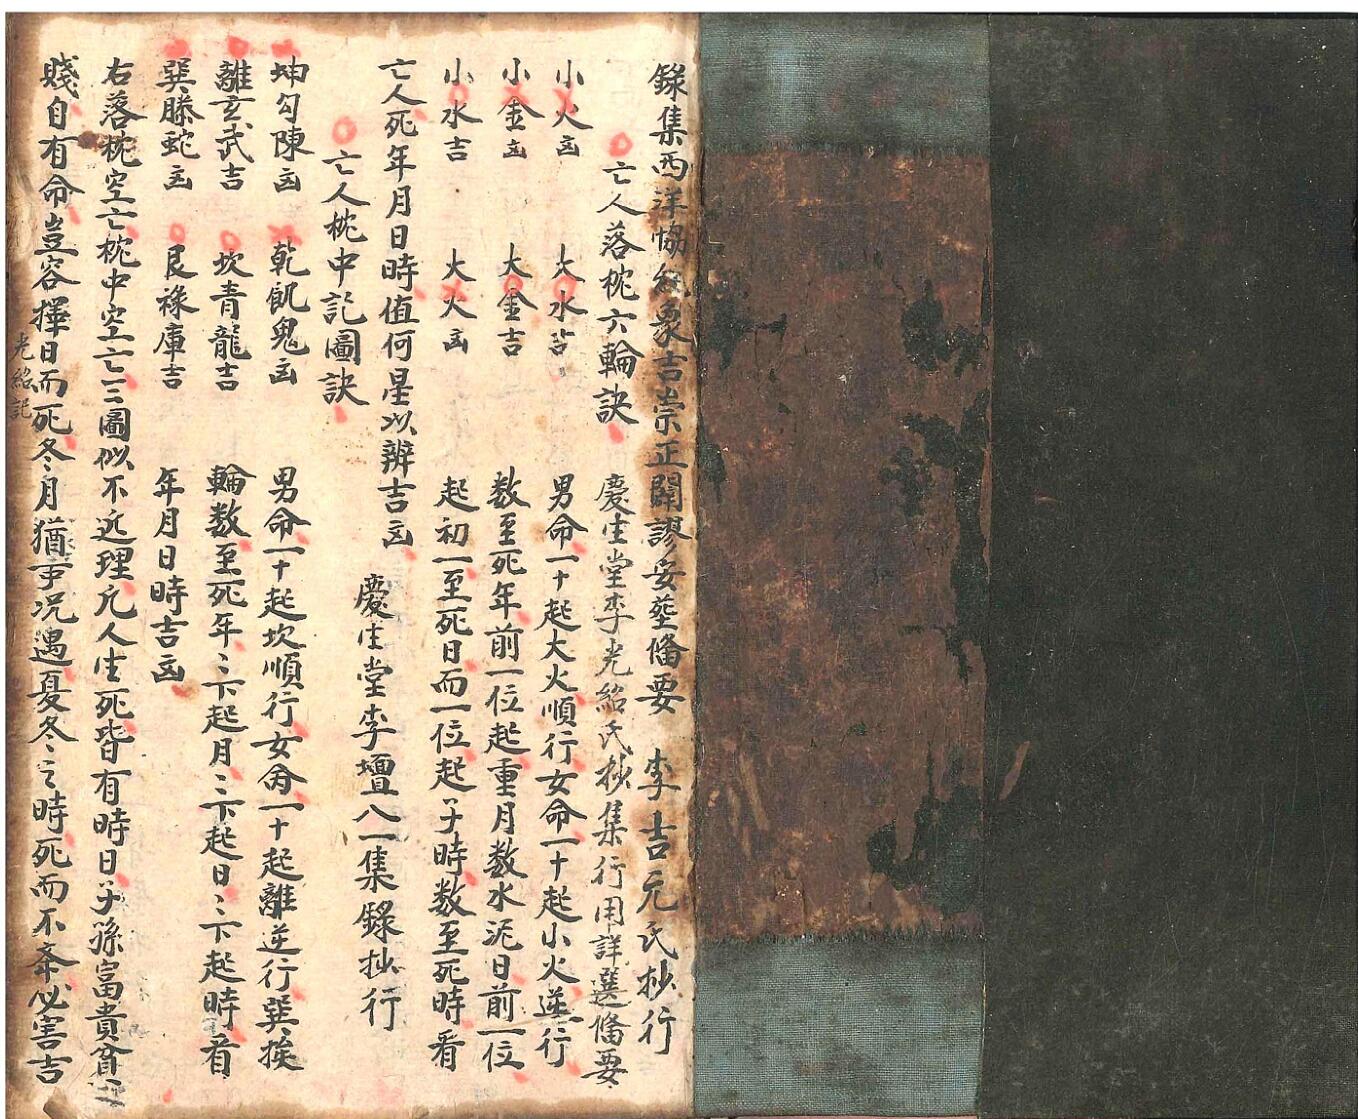 錄集西洋協紀象吉崇正闢謬安葬俻要 李吉元氏抄行
亡人落枕六輪訣 慶生堂李光紹氏抄集行用詳選俻要
小火凶 大水吉 男命一十起大火順行女命一十起小火逆行
小金凶 大金吉 数至死年前一位起重月数水泥日前一位
小水吉 大火凶 起初一至死日而一位起子時数至死時看
亡人死年月日時值何星以辨吉凶 慶生堂李壇八一集錄抄行
亡人枕中記圖訣
坤勾陳凶 乾飢鬼凶 男命一十起坎順行女命一十起離逆行巽挨
離玄武吉 坎青龍吉 輪数至死年〻下起月〻下起日〻下起時看
巽滕蛇凶 艮祿庫吉 年月日時吉凶
右落枕空亡枕中空亡三圖似不近理凢人生死皆有時日子孫富貴貧〻
賤自有命豈容擇日而死冬月猶可况遇夏冬〻之時死而不奔必害吉
光紹記